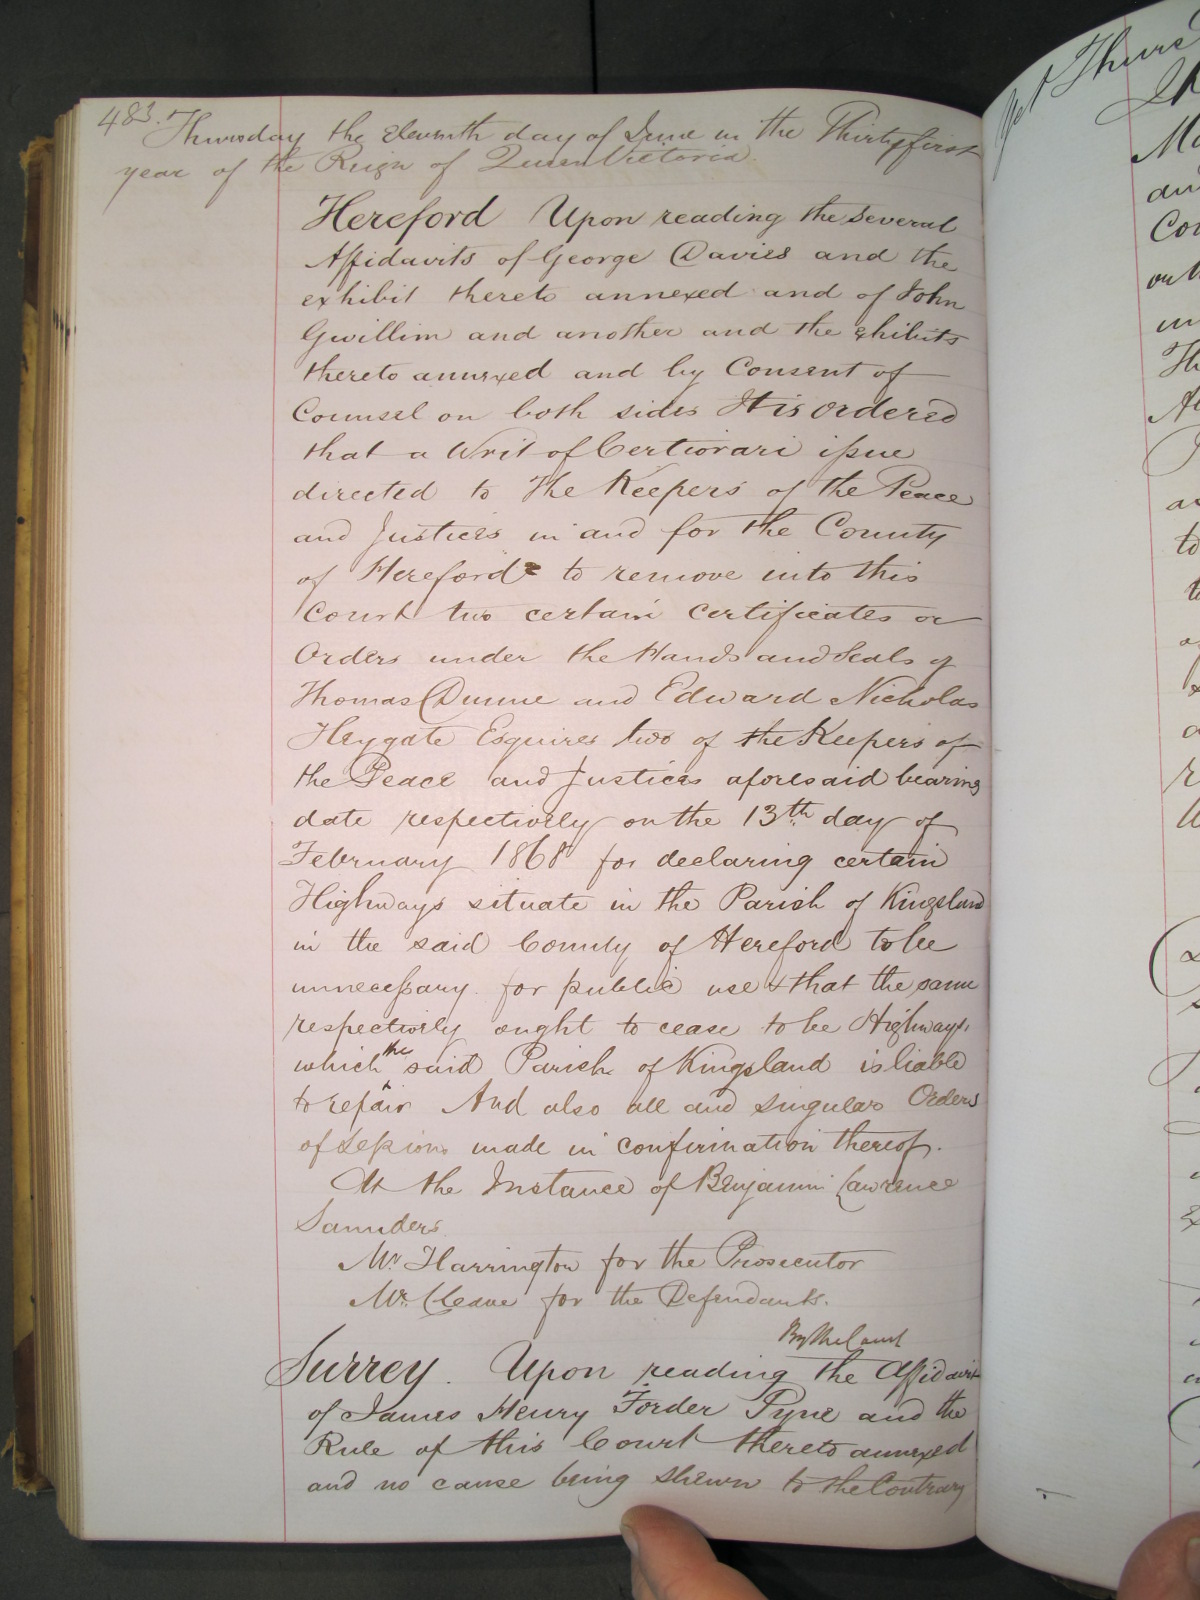 483.
Thursday the Eleventh day of June in the Thirtyfirst
year of the Reign of Queen Victoria.
Hereford Upon reading the several
Affidavits of George Davies and the
exhibit thereto annexed and of John
Gwillim and another and the exhibits
thereto annexed and by Consent of
Counsel on both sides It is ordered
that a Writ of Certiorari issue
directed to The Keepers of the Peace
and Justices in and for the County
of Hereford to remove into this
Court two certain certificates or
Orders under the Hands and Seals of
Thomas Dunne and Edward Nicholas
Heygate Esquires two of the Keepers of
the Peace and Justices aforesaid bearing
date respectively on the 13th day of
February 1868 for declaring certain
Highways situate in the Parish of Kingsland
in the said County of Hereford to be
unnecessary for public use & that the same
respectively ought to cease to be Highways.
which the said Parish of Kingsland is liable
to repair And also all and singular Orders
of Sessions made in confirmation thereof.
At the Instance of Benjamin Lawrence
Saunders
Mr. Harrington for the Prosecutor
Mr. Cleave for the Defendants.
By the Court
Surrey. Upon reading the Affidavit
of James Henry Forder Pyne and the
Rule of this Court thereto annexed
and no cause being shewn to the Contrary